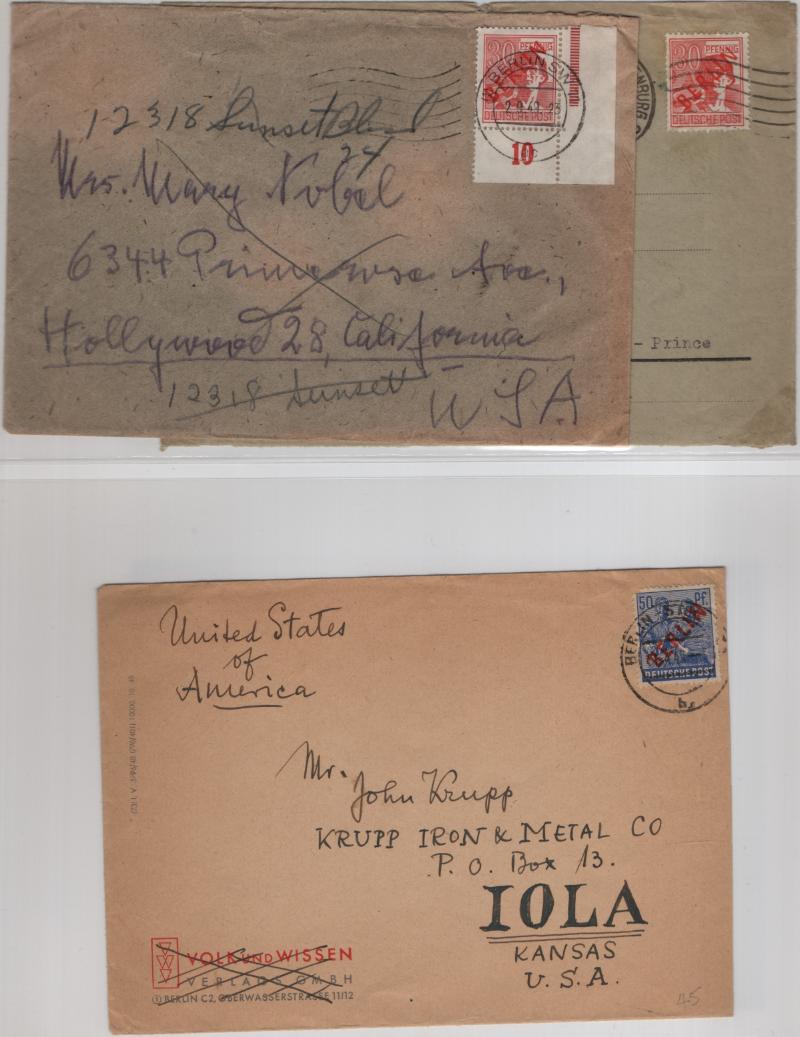 30 PFENNIG
BERLIN
DEUTSCHE POST
BERLIN SW
2.9.49
10
30 PFENNIG
BERLIN
DEUTSCHE POST
12318 Sunset Blvd
24
Mrs. Mary Nobel
6344 Primrose Ave.,
Hollywood 28, California
12318 Sunset
USA
- Prince
50 Pf.
BERLIN
DEUTSCHE POST
BERLIN
United States
of
America
Mr.
John Krupp
KRUPP IRON & METAL CO
P. O. Box 13.
IOLA
KANSAS
U. S. A.
VOLK UND WISSEN
VERLAGS GMBH
① BERLIN C2, OBERWASSERSTRASSE 11/12
45